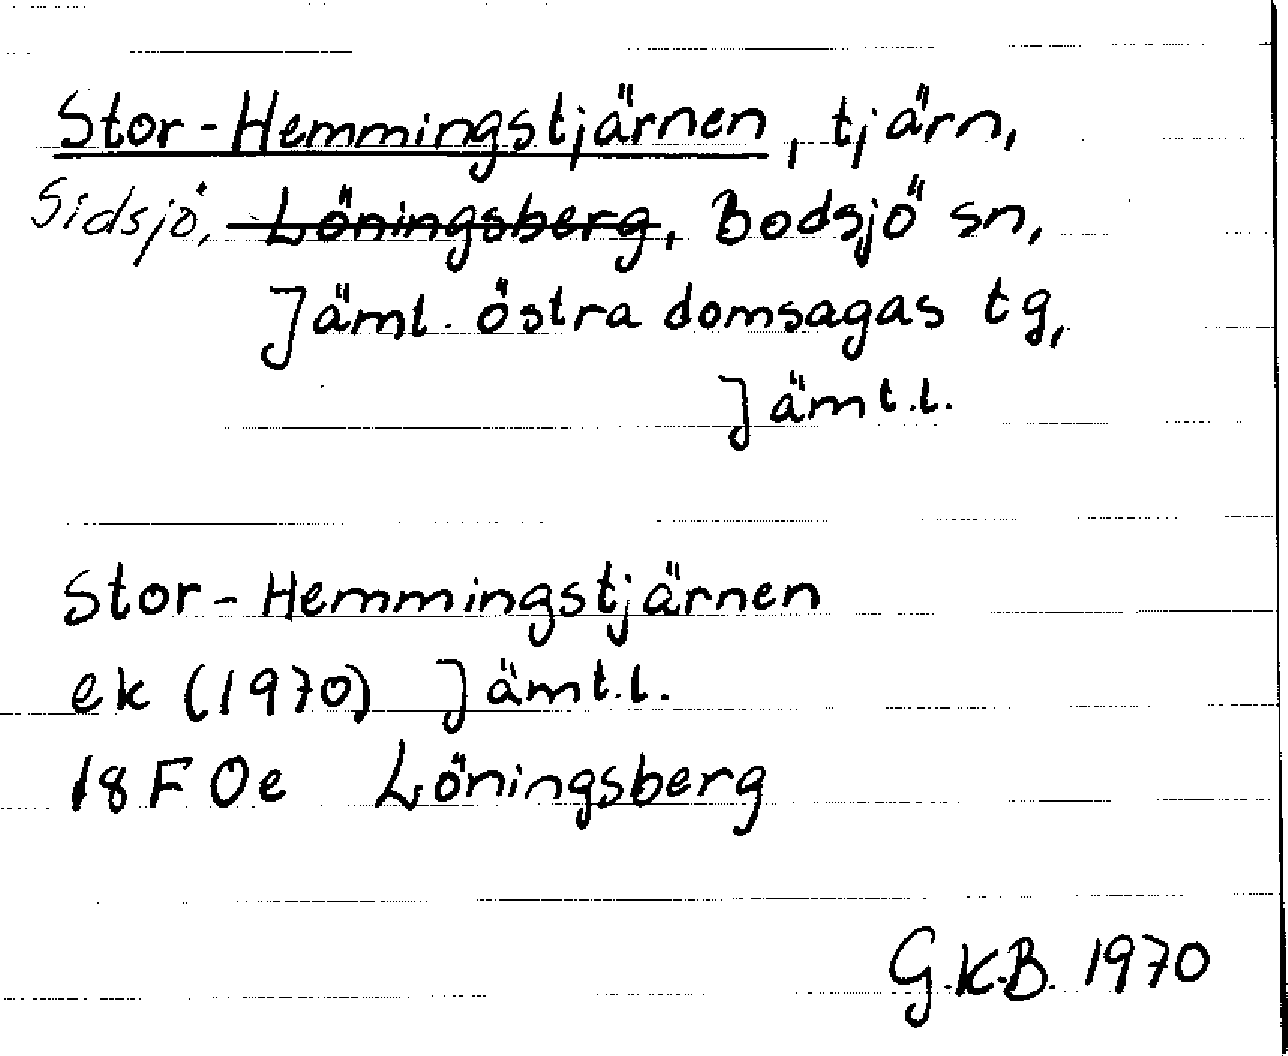 Stor-Hemmingstjärnen, tjärn,
Sidsjö, Löningsberg, Bodsjö sn,
Jämt. östra domsagas tg,
Jämt.l.
Stor-Hemmingstjärnen
ek (1970) Jämt.l.
18F 0e Löningsberg
G.K.B. 1970